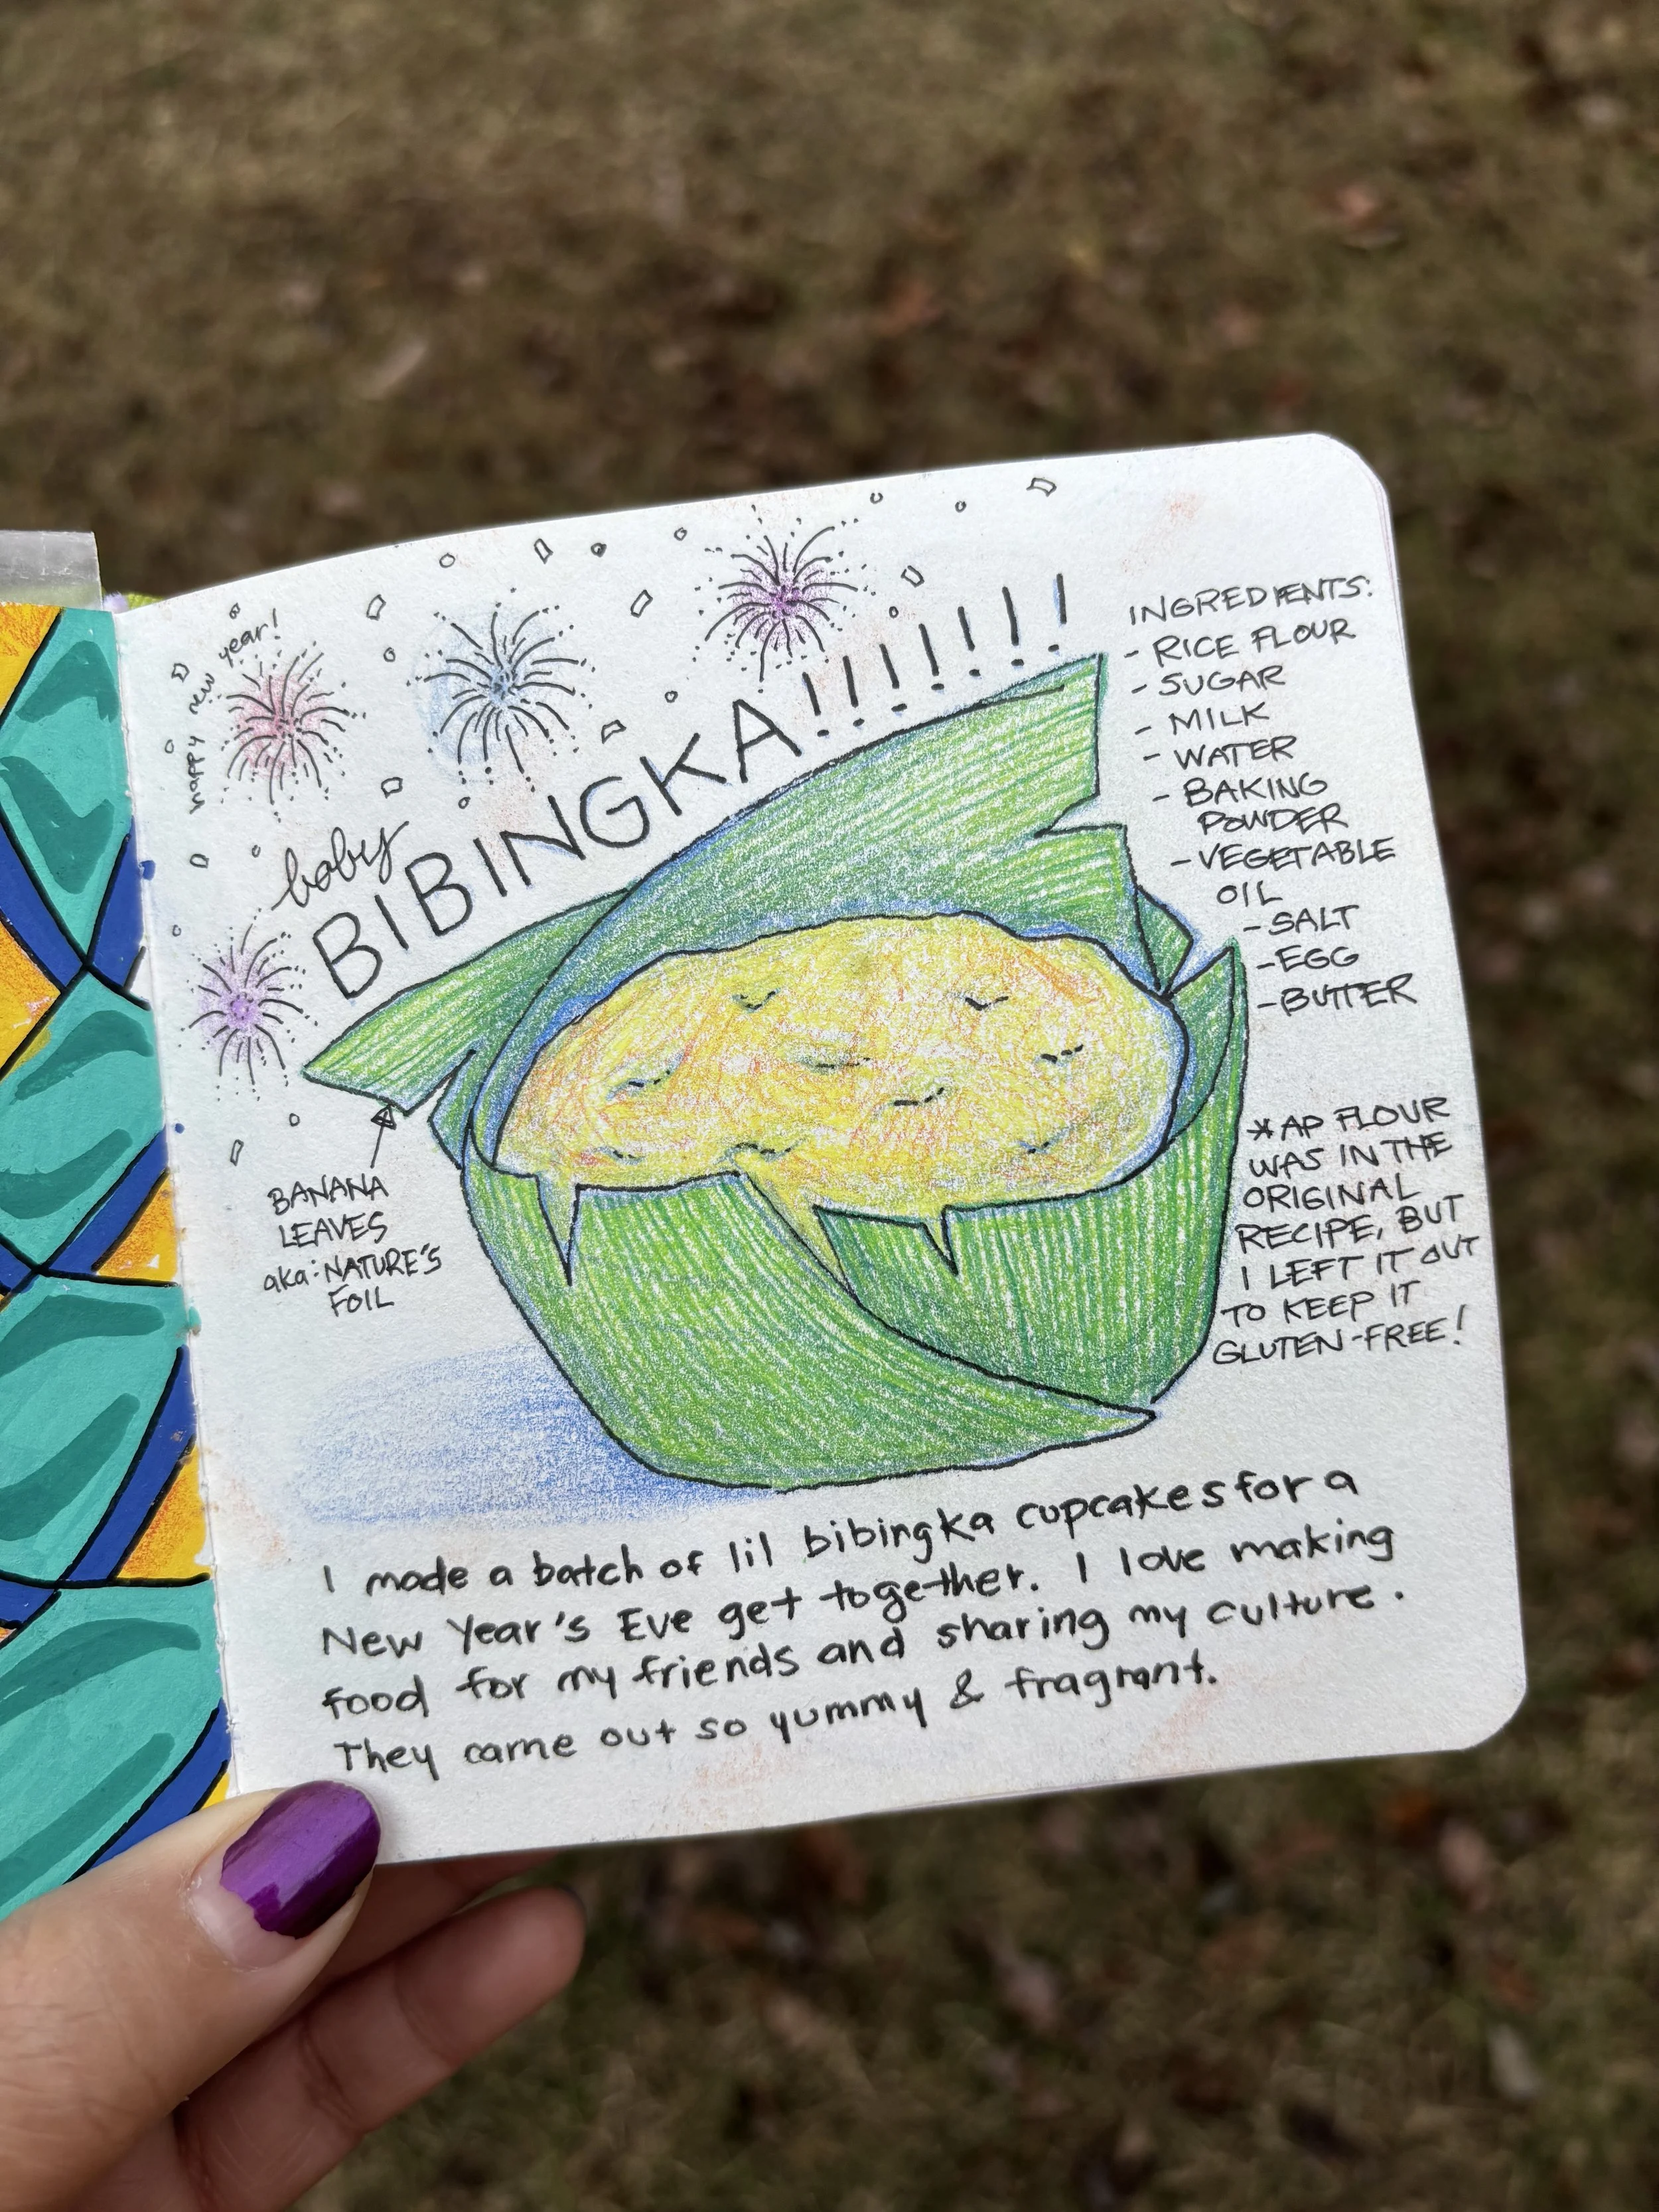 happy new year!
baby
BIBINGKA!!!!!!!
INGREDIENTS:
- RICE FLOUR
- SUGAR
- MILK
- WATER
- BAKING
POWDER
- VEGETABLE
OIL
- SALT
- EGG
- BUTTER
* AP FLOUR
WAS IN THE
ORIGINAL
RECIPE, BUT
I LEFT IT OUT
TO KEEP IT
GLUTEN-FREE!
BANANA
LEAVES
aka: NATURE'S
FOIL
I made a batch of lil bibingka cupcakes for a
New Year's Eve get together. I love making
food for my friends and sharing my culture.
They came out so yummy & fragrant.